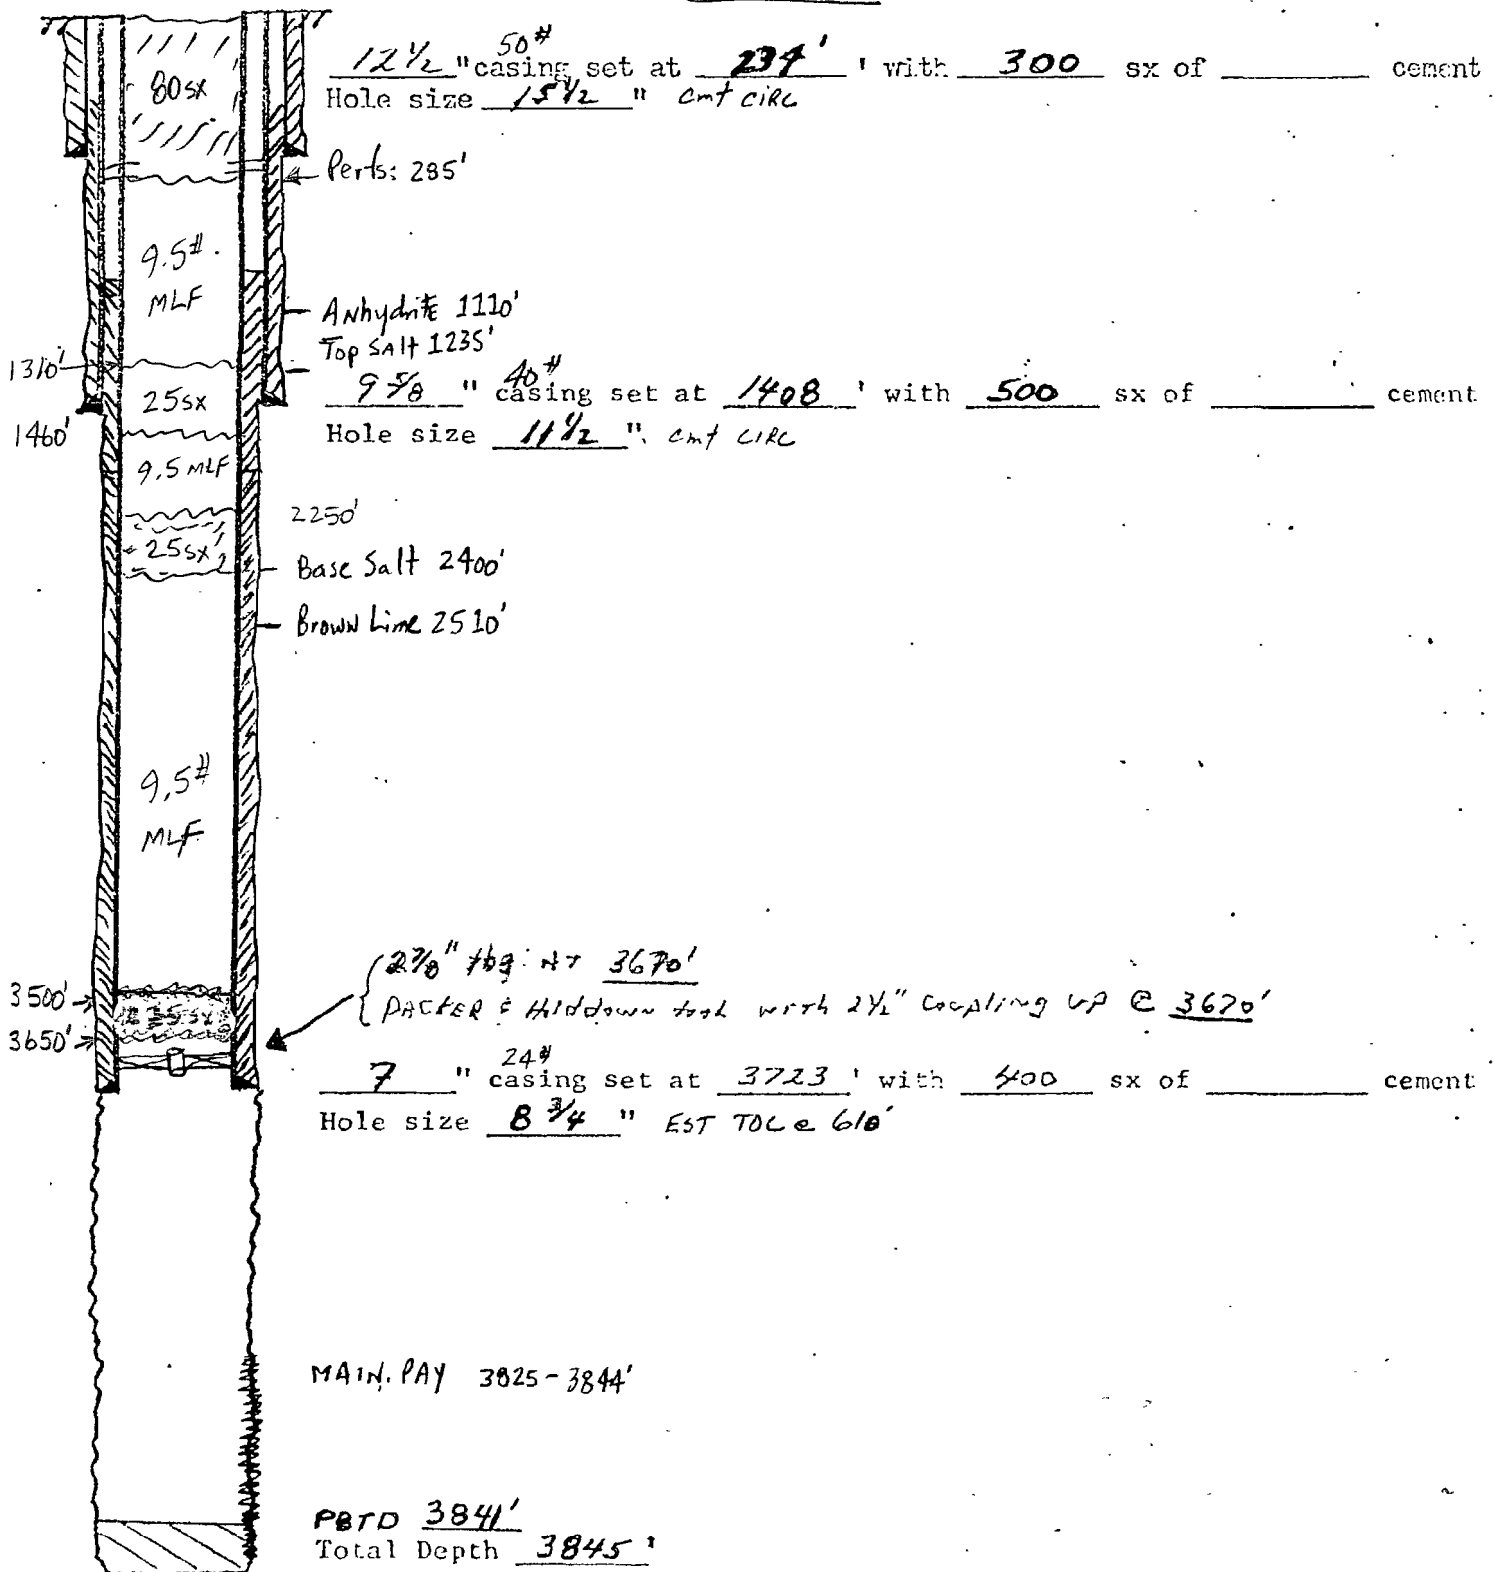 50#
12 1/2 " casing set at 234' ' with 300 sx of ______ cement
Hole size 15 1/2 " Cmt CIRC
80sx
Perfs: 285'
9.5#
MLF
Anhydrite 1110'
Top SAlt 1235'
1310'
40#
9 5/8 " casing set at 1408 ' with 500 sx of ______ cement
25sx
Hole size 11 1/2 ". Cmt CIRC
1460'
9.5 MLF
2250'
25sx
Base Salt 2400'
Brown Lime 2510'
9,5#
MLF
2 7/8" tbg: AT 3670'
PACKER & Holddown tool with 2 1/2" Coupling UP @ 3670'
3500'
35sx
3650'
24#
7 " casing set at 3723 ' with 400 sx of ______ cement
Hole size 8 3/4 " EST TOC @ 610'
MAIN. PAY 3825-3844'
PBTD 3841'
Total Depth 3845 '